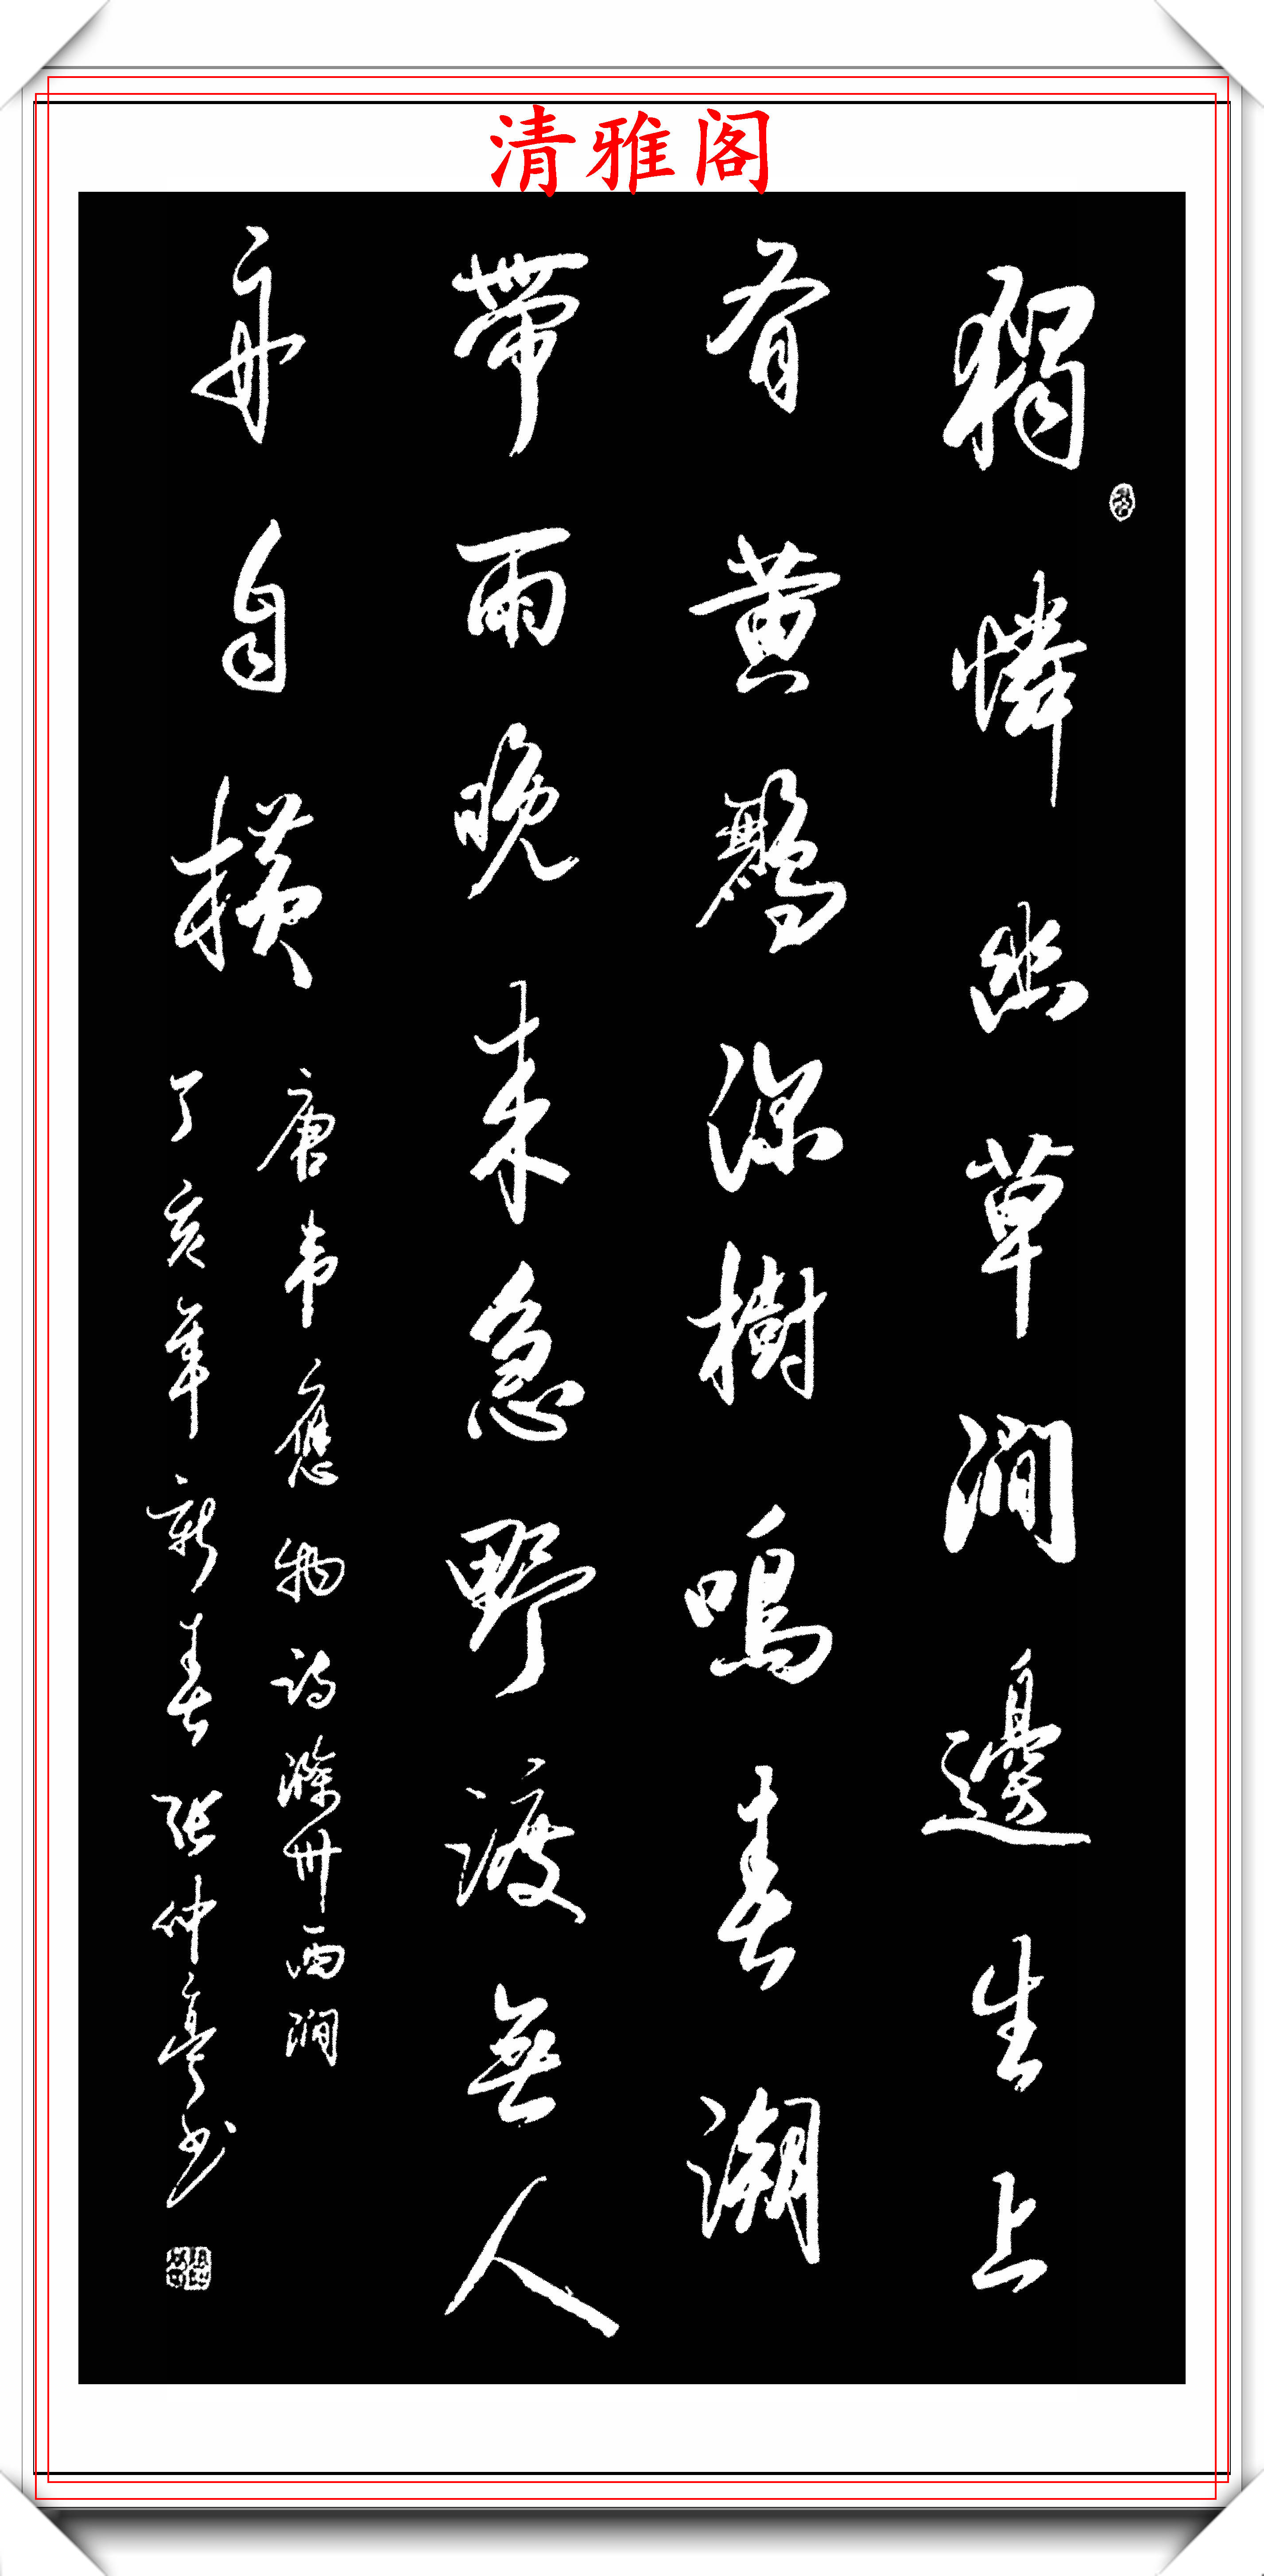 清雅阁
獨憐幽草澗邊生上
有黄鸝深樹鳴春潮
帶雨晚来急野渡無人
舟自横
唐韦應物诗滁州西澗
丁亥年新春張仲亭书